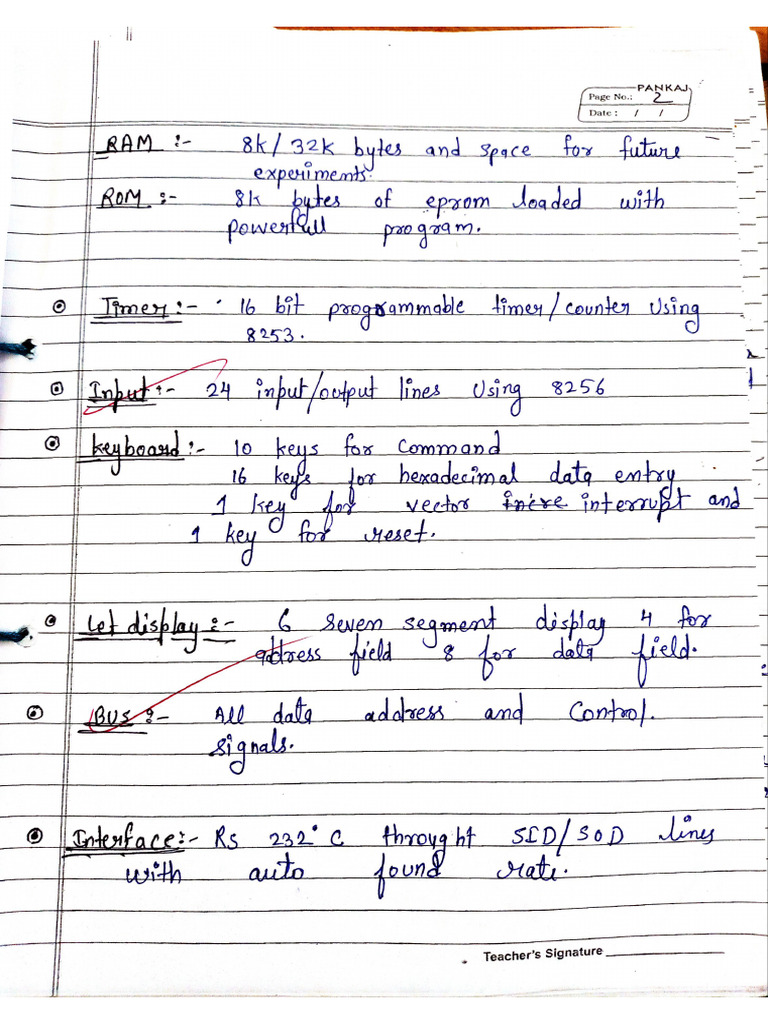 PANKAJ
Page No.: 2
Date : / /
RAM :- 8k/32k bytes and space for future
experiments.
ROM :- 8k bytes of eprom loaded with
powerfull program.
Timer :- 16 bit programmable timer/counter Using
8253.
Input :- 24 input/output lines Using 8256
Keyboard :- 10 keys for Command
16 keys for hexadecimal data entry
1 key for vector incre interrupt and
1 key for reset.
Let display :- 6 seven segment display 4 for
address field 8 for data field.
BUS :- All data address and Control.
signals.
Interface :- Rs 232° C throught SID/SOD lines
with auto found rate.
Teacher's Signature